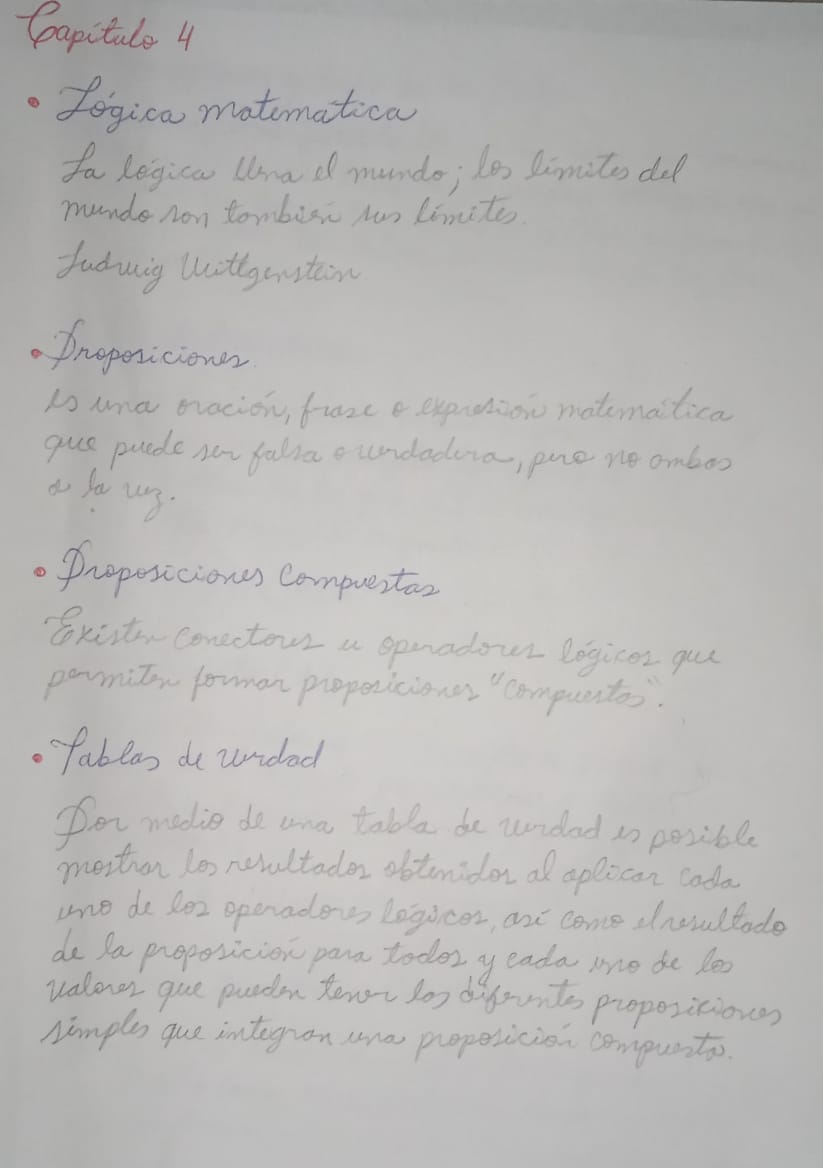 Capítulo 4
• Lógica matemática
La lógica llena el mundo; los límites del
mundo son también sus límites.
Ludwig Wittgenstein
• Proposiciones.
Es una oración, frase o expresión matemática
que puede ser falsa o verdadera, pero no ambas
a la vez.
• Proposiciones Compuestas
Existen conectores u operadores lógicos que
permiten formar proposiciones "Compuestas".
• Tablas de verdad
Por medio de una tabla de verdad es posible
mostrar los resultados obtenidos al aplicar cada
uno de los operadores lógicos, así como el resultado
de la proposición para todos y cada uno de los
valores que pueden tener las diferentes proposiciones
simples que integran una proposición compuesta.